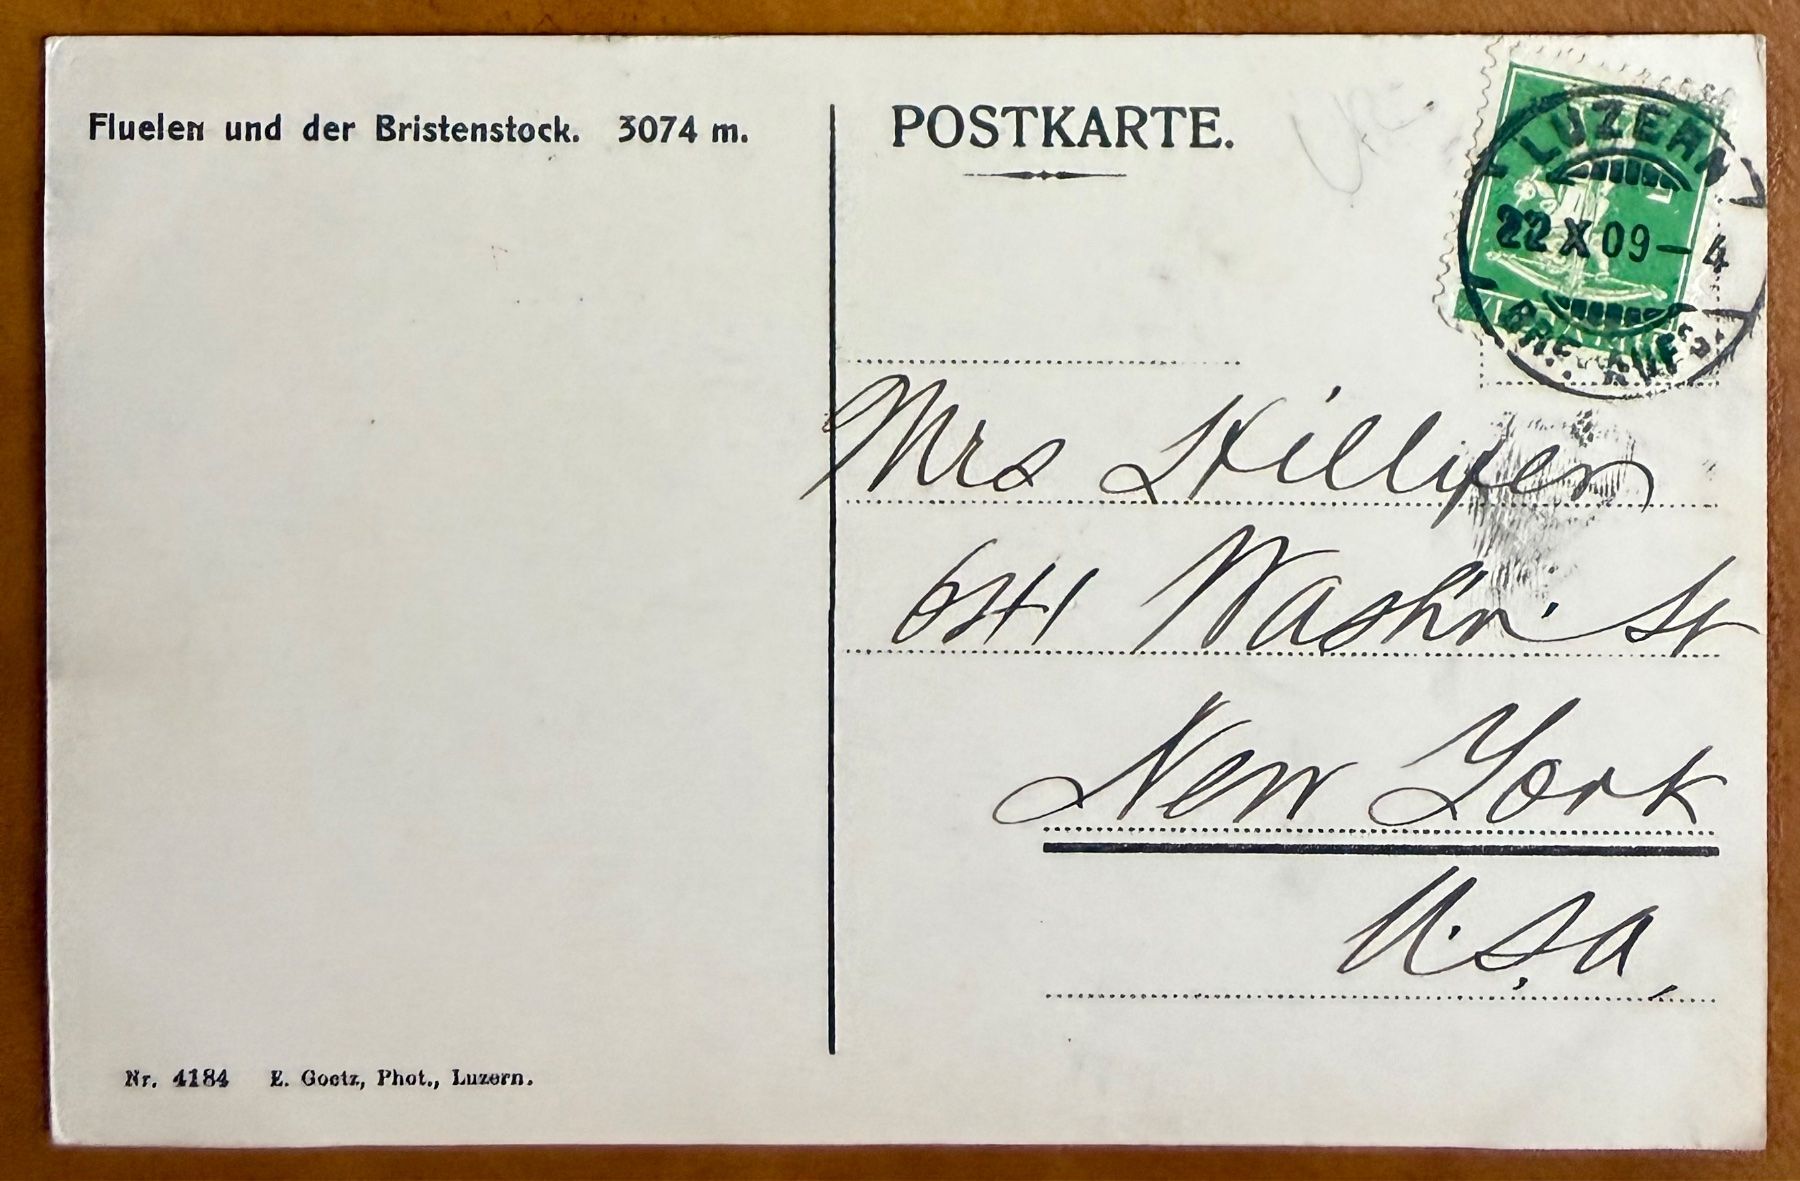 Fluelen und der Bristenstock. 3074 m.
POSTKARTE.
LUZERN
22 X 09 - 4
BRF. AUFG.
Mrs Hillyer
641 Wash'n. St
New York
U.S.A.
Nr. 4184 E. Goetz, Phot., Luzern.